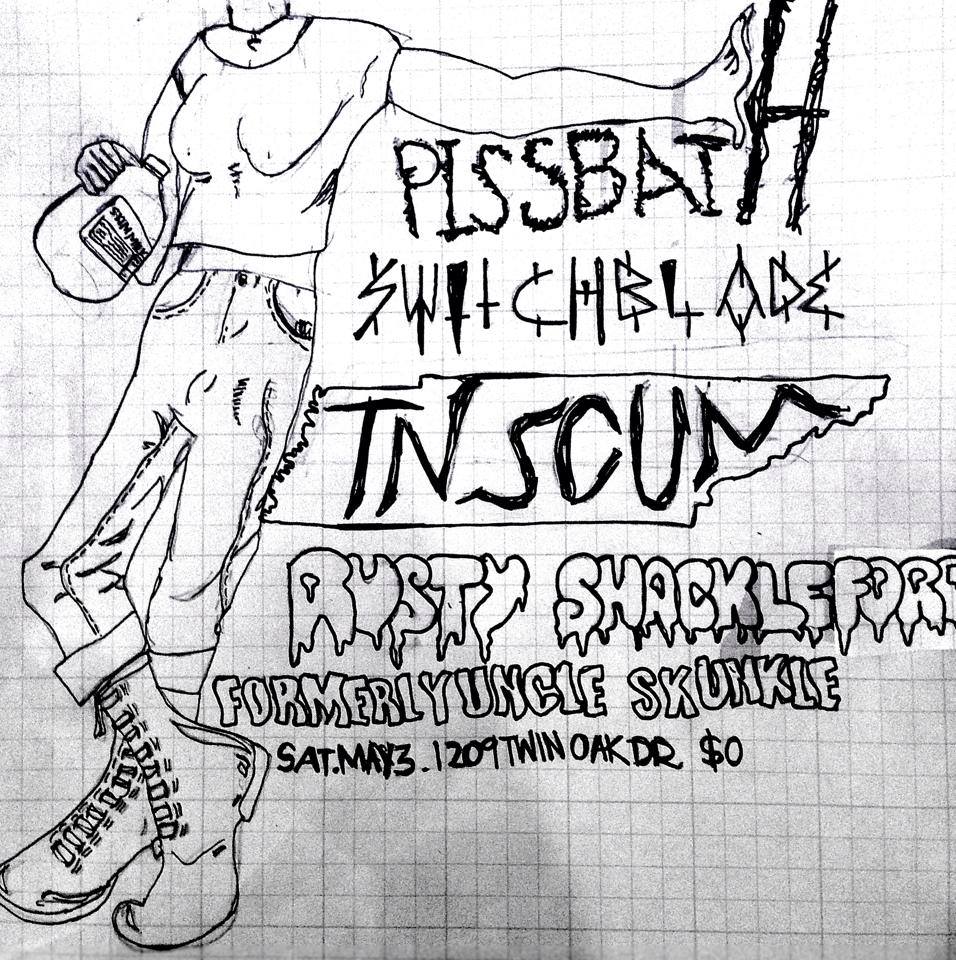 PISSBATH
SWITCHBLADE
TN SCUM
RUSTY SHACKLEFORD
FORMERLY UNCLE SKUNKLE
SAT. MAY 3. 1209 TWIN OAK DR. $0